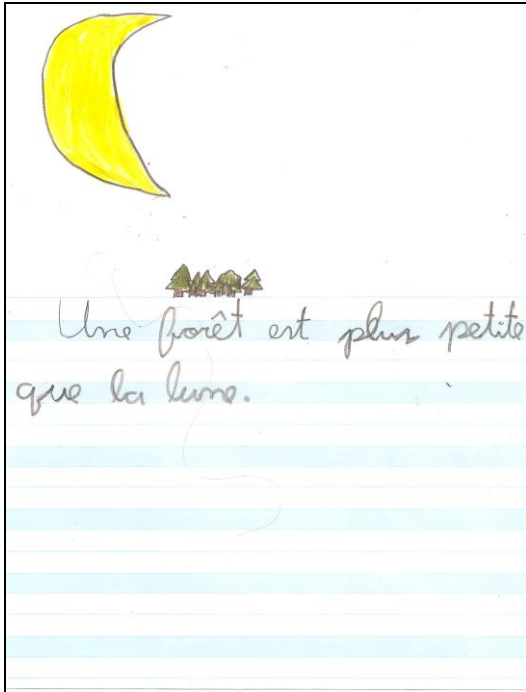 Une forêt est plus petite
que la lune.